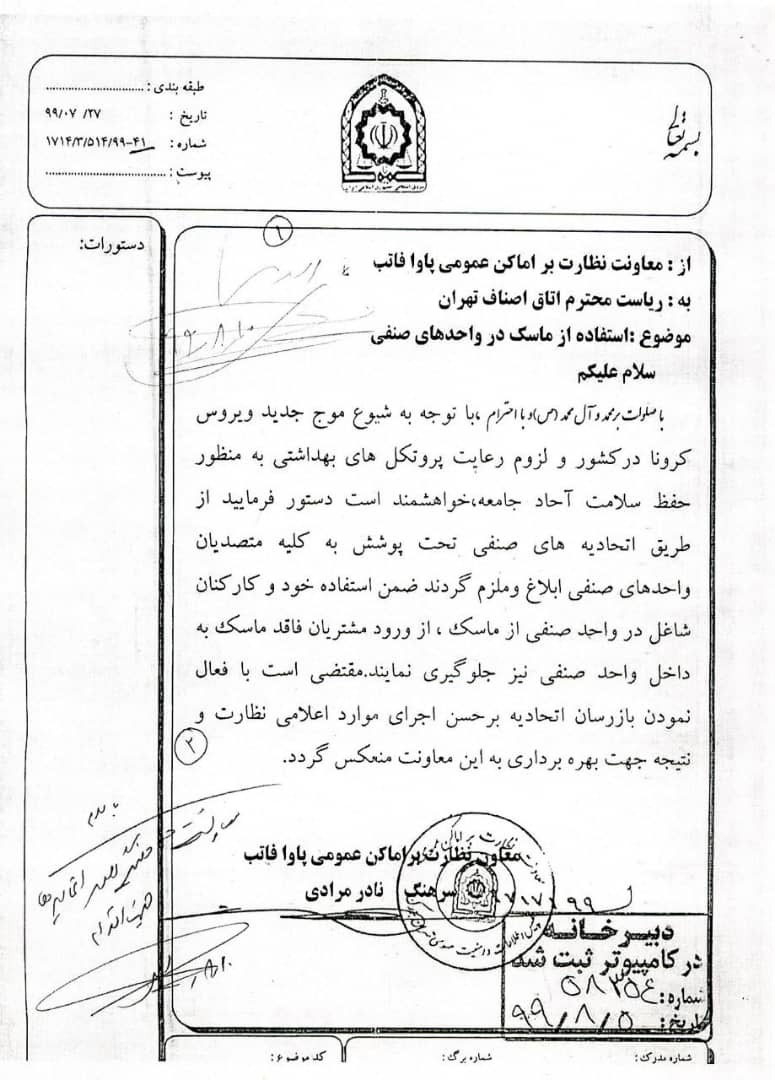 بسمه تعالی
طبقه بندی : ..............................
تاریخ : ۹۹/۰۷/۲۷
شماره : ۱۷۱۴/۳/۵۱۴/۹۹-۴۱
پیوست : ..............................
دستورات:
۱
از : معاونت نظارت بر اماکن عمومی پاوا فاتب
به : ریاست محترم اتاق اصناف تهران
موضوع :استفاده از ماسک در واحدهای صنفی
سلام علیکم
با صلوات بر محمد و آل محمد (ص) و با احترام ،با توجه به شیوع موج جدید ویروس
کرونا درکشور و لزوم رعایت پروتکل های بهداشتی به منظور
حفظ سلامت آحاد جامعه،خواهشمند است دستور فرمایید از
طریق اتحادیه های صنفی تحت پوشش به کلیه متصدیان
واحدهای صنفی ابلاغ وملزم گردند ضمن استفاده خود و کارکنان
شاغل در واحد صنفی از ماسک ، از ورود مشتریان فاقد ماسک به
داخل واحد صنفی نیز جلوگیری نمایند.مقتضی است با فعال
نمودن بازرسان اتحادیه برحسن اجرای موارد اعلامی نظارت و
نتیجه جهت بهره برداری به این معاونت منعکس گردد.
۲
معاون نظارت بر اماکن عمومی پاوا فاتب
سرهنگ نادر مرادی
دبیرخانه
در کامپیوتر ثبت شد
شماره: ۵۸۳۵۶
تاریخ: ۹۹/۸/۵
شماره مدرک: شماره برگ: کد موضوع :